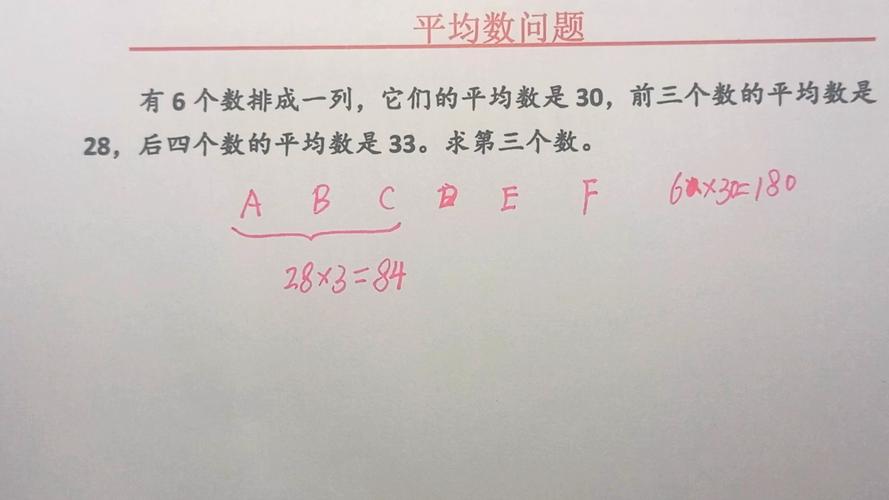 平均数问题
有 6 个数排成一列，它们的平均数是 30，前三个数的平均数是
28，后四个数的平均数是 33。求第三个数。
A B C D E F 6×30=180
28×3=84